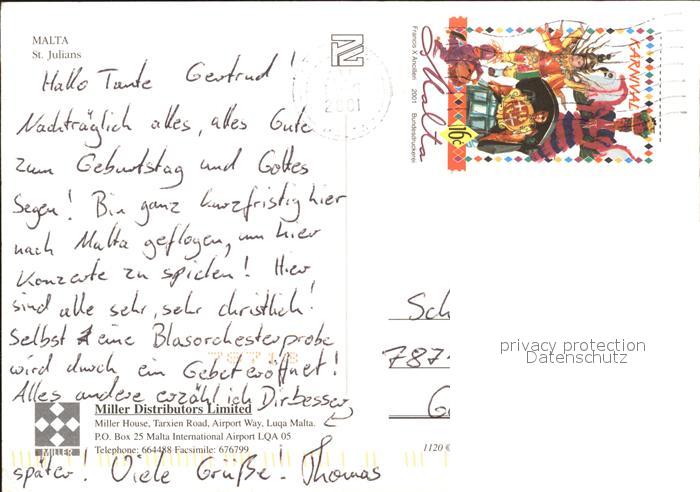 MALTA
St. Julians
Hallo Tante Gertrud!
Nachträglich alles, alles Gute
zum Geburtstag und Gottes
Segen! Bin ganz kurzfristig hier
nach Malta geflogen, um hier
Konzerte zu spielen! Hier
sind alle sehr, sehr christlich!
Selbst eine Blasorchesterprobe
wird durch ein Gebet eröffnet!
Alles andere erzähl ich Dir besser
später! Viele Grüße! Thomas
Miller Distributors Limited
Miller House, Tarxien Road, Airport Way, Luqa Malta.
P.O. Box 25 Malta International Airport LQA 05
Telephone: 664488 Facsimile: 676799
MILLER
78713
2001
KARNIVAL
Malta
16c
Francis X Ancilleri 2001 Bundesdruckerei
Sch
787
G
privacy protection
Datenschutz
1120 ©